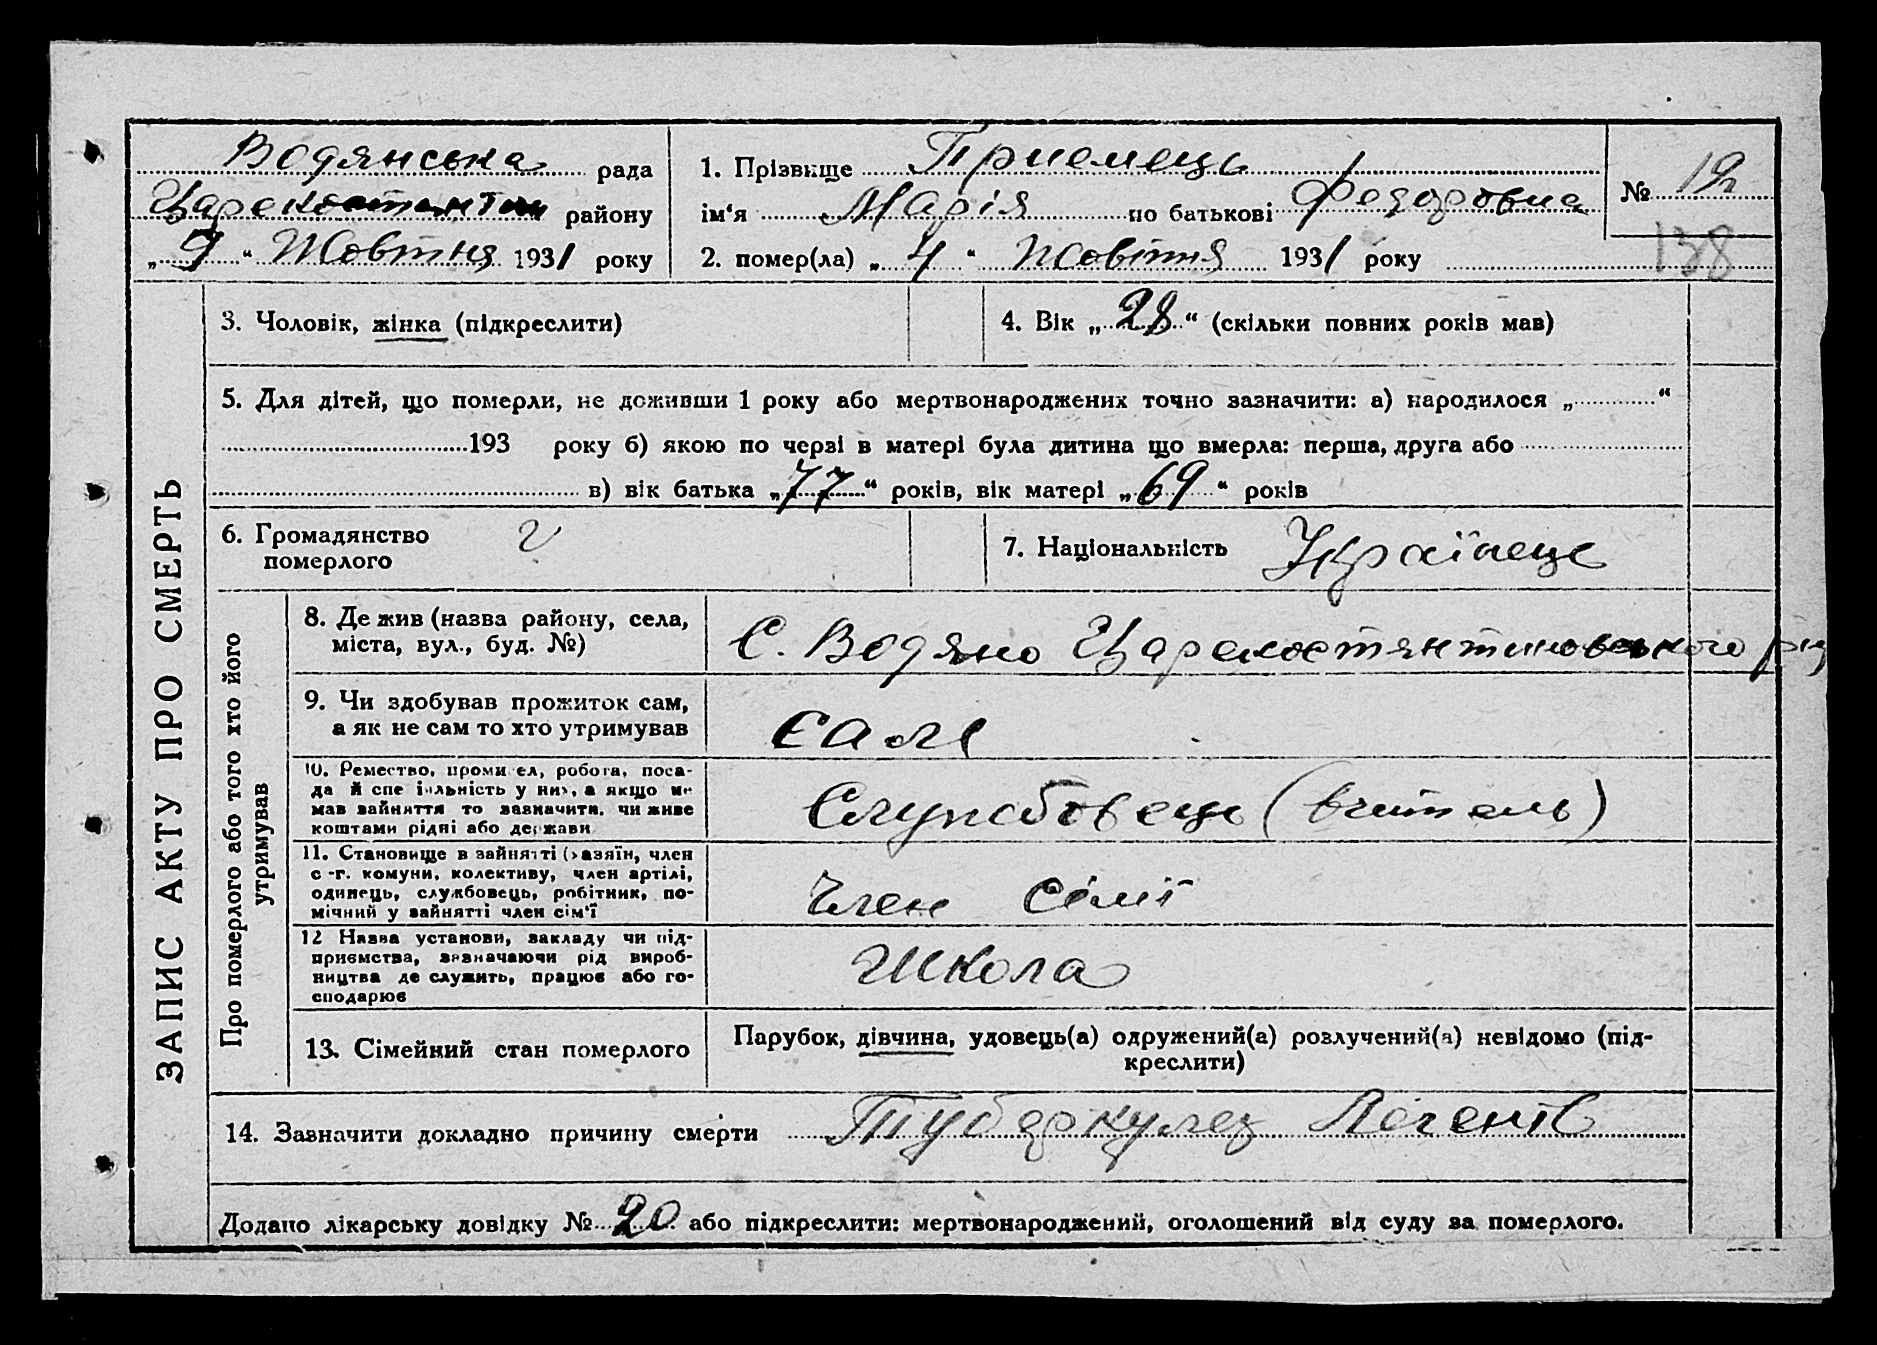 Водянська рада
Царекостянтин району
„ 9 “ Жовтня 1931 року
1. Прізвище Приемець
ім‘я Марія по батькові Федоровна
2. помер(ла) „ 4 “ Жовтня 1931 року
№ 19
138
ЗАПИС АКТУ ПРО СМЕРТЬ
3. Чоловік, жінка (підкреслити)
4. Вік „ 28 “ (скільки повних років мав)
5. Для дітей, що померли, не доживши 1 року або мертвонароджених точно зазначити: а) народилося „ “
193 року б) якою по черзі в матері була дитина що вмерла: перша, друга або
в) вік батька „ 77 “ років, вік матері „ 69 “ років
6. Громадянство
померлого
7. Національність Українець
Про померлого або того хто його
утримував
8. Де жив (назва району, села,
міста, вул., буд. №)
С. Водяно Царекостянтиновського р-ну
9. Чи здобував прожиток сам,
а як не сам то хто утримував
сам
10. Ремество, промисел, робота, поса-
да й спеціяльність у них, а якщо не
мав зайняття то зазначити, чи живе
коштами рідні або держави
Службовець (вчитель)
11. Становище в зайнятті (хазяїн, член
с.-г. комуни, колективу, член артілі,
одинець, службовець, робітник, по-
мічний у зайнятті член сім'ї
Член сімї
12 Назва установи, закладу чи під-
приємства, зазначаючи рід вироб-
ництва де служить, працює або го-
сподарює
Школа
13. Сімейний стан померлого
Парубок, дівчина, удовець(а) одружений(а) розлучений(а) невідомо (під-
креслити)
14. Зазначити докладно причину смерти Туберкулез Легенів
Додано лікарську довідку № 20 або підкреслити: мертвонароджений, оголошений від суду за померлого.